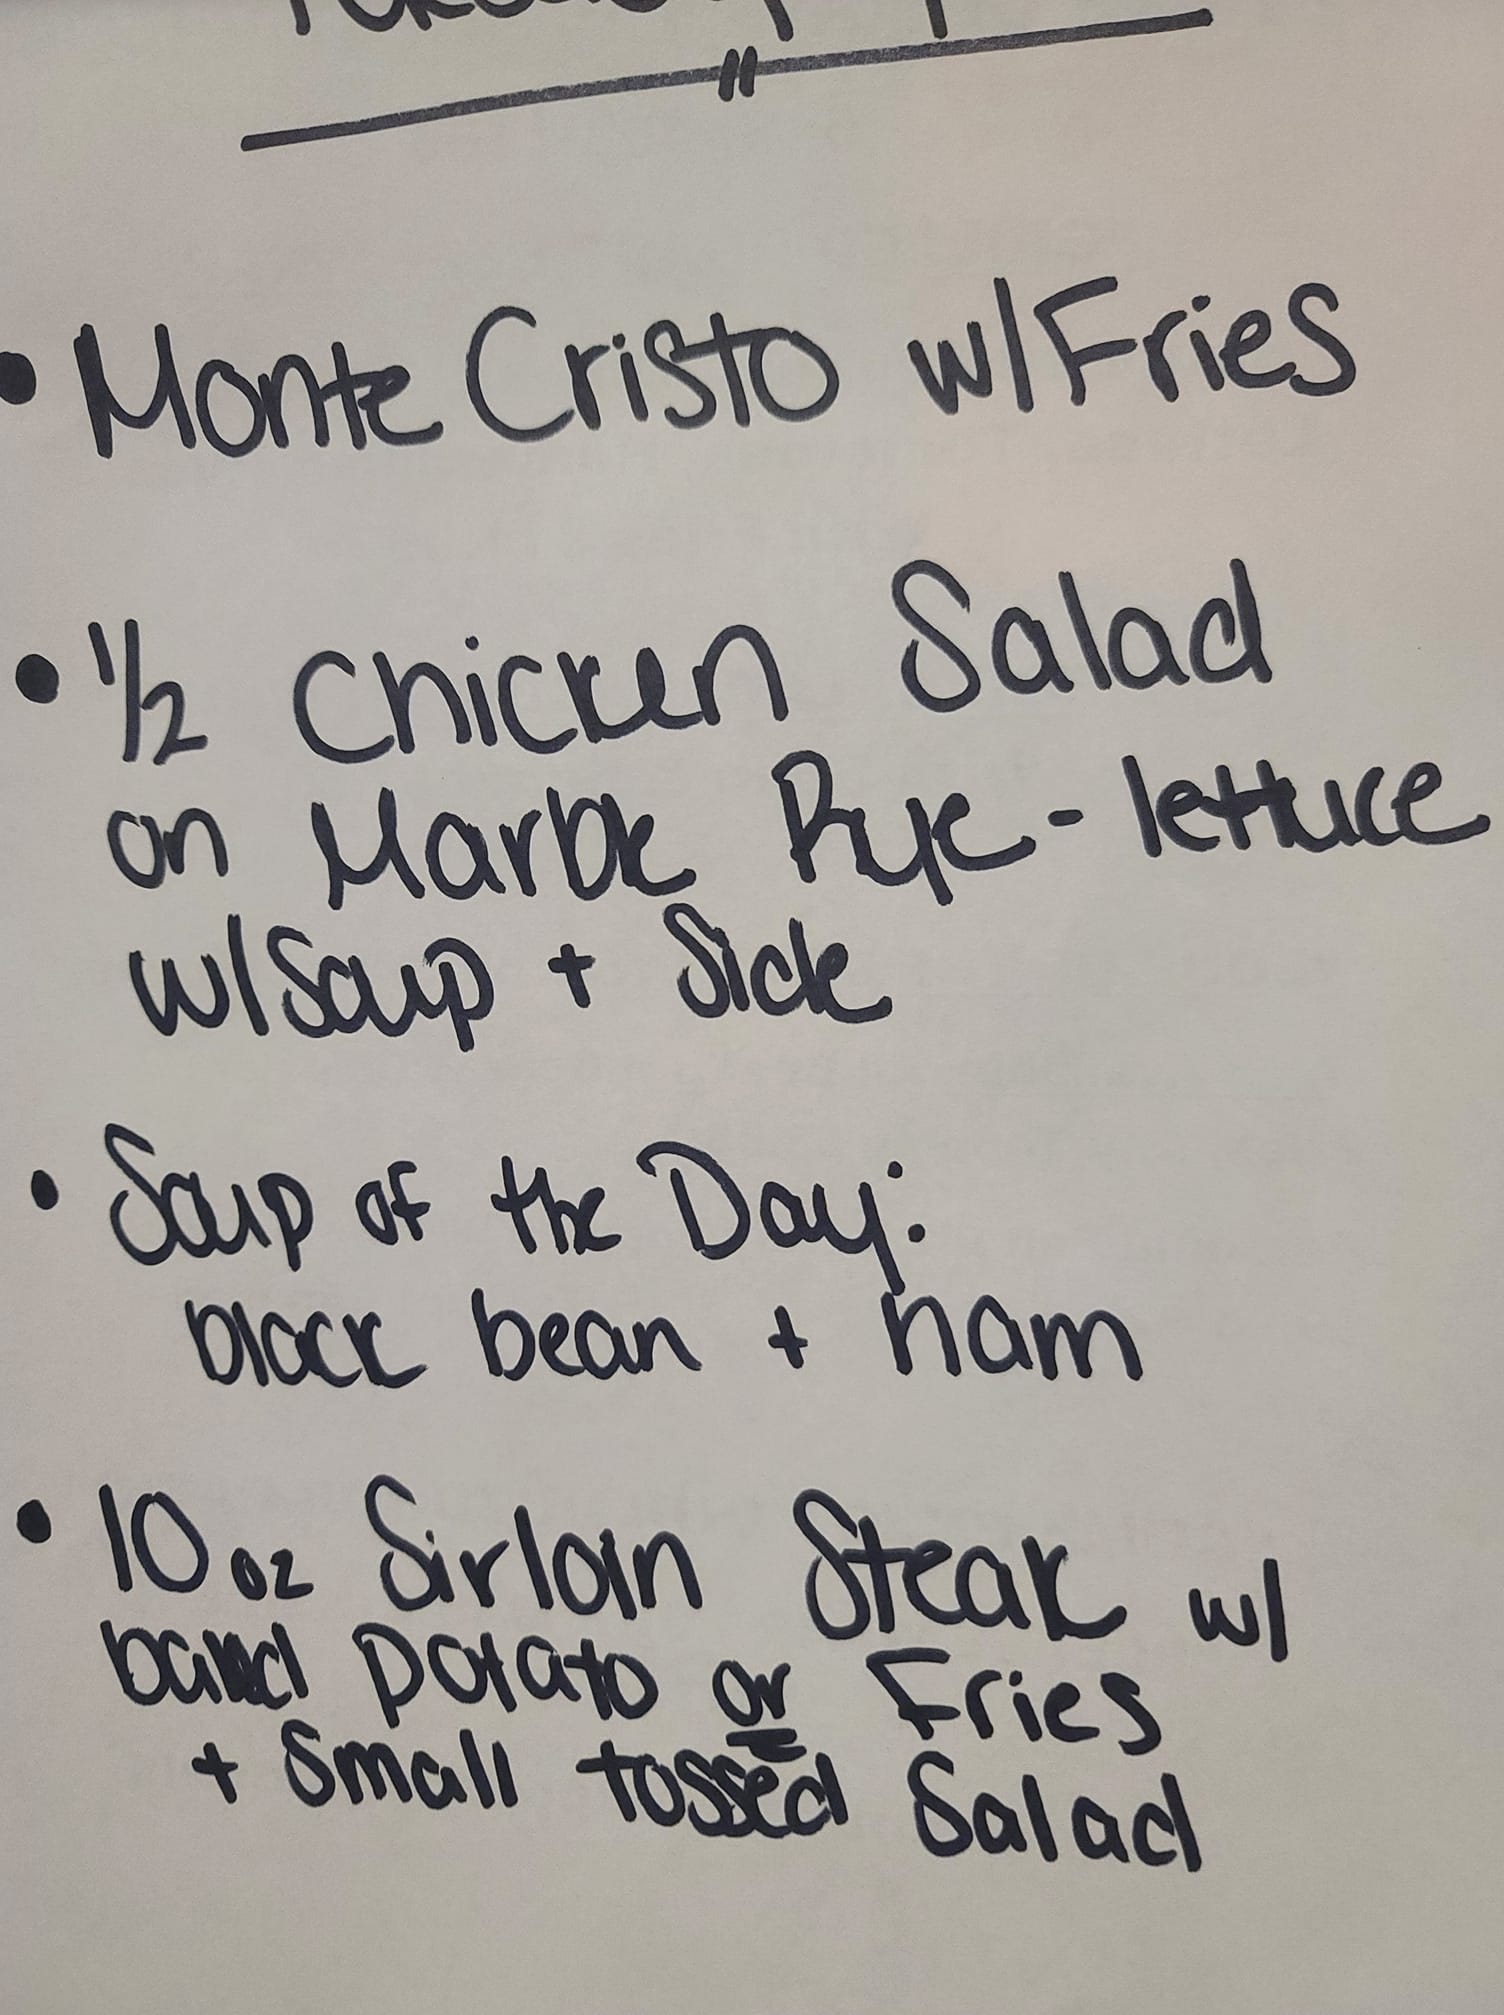 • Monte Cristo w/Fries
• 1/2 Chicken Salad
on Marble Rye - lettuce
w/Soup + Side
• Soup of the Day:
black bean + ham
• 10 oz Sirloin Steak w/
baked potato or Fries
+ Small tossed Salad